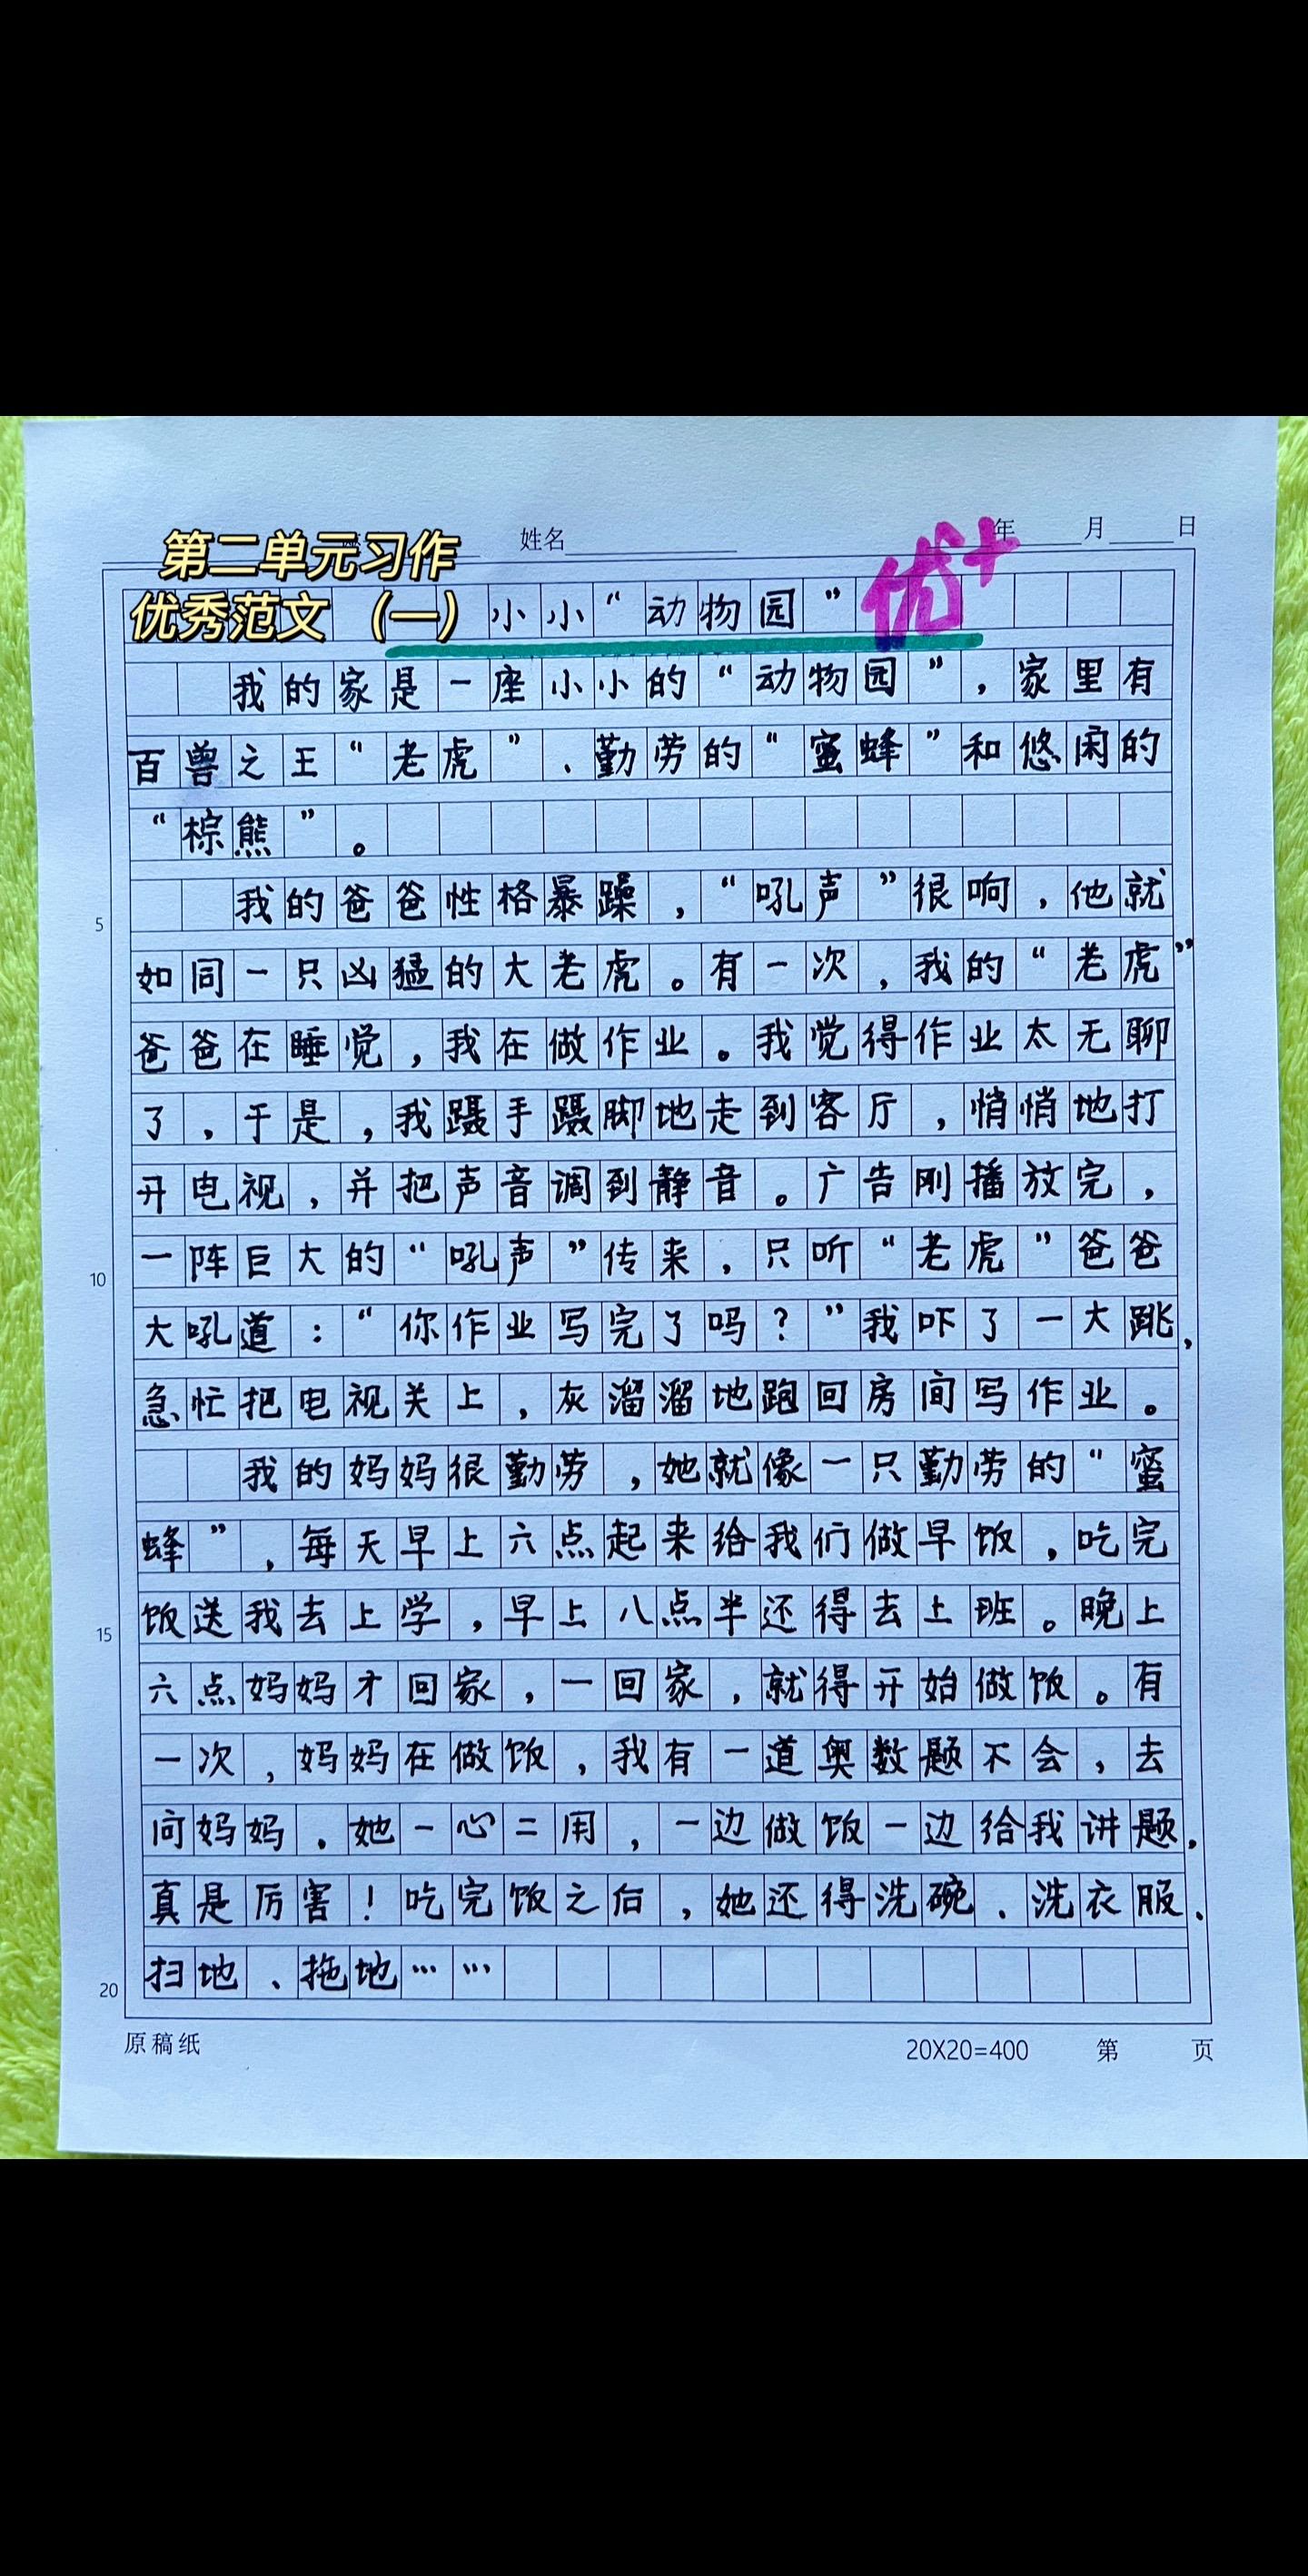 第二单元习作
优秀范文（一）
姓名 年 月 日
优+
小小“动物园”
我的家是一座小小的“动物园”，家里有
百兽之王“老虎”、勤劳的“蜜蜂”和悠闲的
“棕熊”。
我的爸爸性格暴躁，“吼声”很响，他就
5
如同一只凶猛的大老虎。有一次，我的“老虎”
爸爸在睡觉，我在做作业。我觉得作业太无聊
了，于是，我蹑手蹑脚地走到客厅，悄悄地打
开电视，并把声音调到静音。广告刚播放完，
一阵巨大的“吼声”传来，只听“老虎”爸爸
10
大吼道：“你作业写完了吗？”我吓了一大跳，
急忙把电视关上，灰溜溜地跑回房间写作业。
我的妈妈很勤劳，她就像一只勤劳的“蜜
蜂”，每天早上六点起来给我们做早饭，吃完
饭送我去上学，早上八点半还得去上班。晚上
15
六点妈妈才回家，一回家，就得开始做饭。有
一次，妈妈在做饭，我有一道奥数题不会，去
问妈妈，她一心二用，一边做饭一边给我讲题，
真是厉害！吃完饭之后，她还得洗碗、洗衣服、
扫地、拖地……
20
原稿纸 20X20=400 第 页